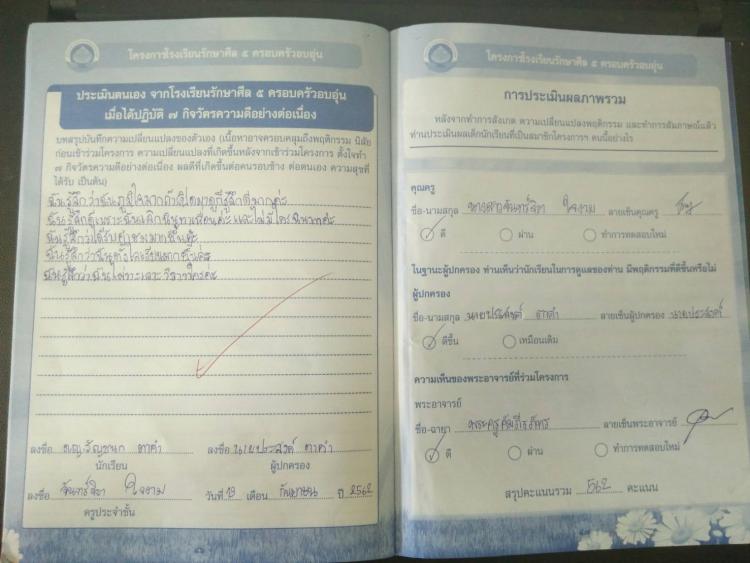 โครงการโรงเรียนรักษาศีล ๕ ครอบครัวอบอุ่น
ประเมินตนเอง จากโรงเรียนรักษาศีล ๕ ครอบครัวอบอุ่น
เมื่อได้ปฏิบัติ ๗ กิจวัตรความดีอย่างต่อเนื่อง
บทสรุปบันทึกความเปลี่ยนแปลงของตัวเอง (เนื้อหาอาจครอบคลุมถึงพฤติกรรม นิสัย
ก่อนเข้าร่วมโครงการ ความเปลี่ยนแปลงที่เกิดขึ้นหลังจากเข้าร่วมโครงการ ตั้งใจทำ
๗ กิจวัตรความดีอย่างต่อเนื่อง ผลดีที่เกิดขึ้นต่อคนรอบข้าง ต่อตนเอง ความสุขที่
ได้รับ เป็นต้น)
ฉันรู้สึกว่าฉันภูมิใจมากถ้าเปิดมาดูก็รู้สึกดีมากค่ะ
ฉันรู้สึกดีเพราะฉันเลิกนินทาเพื่อนค่ะและไม่มีใคร
ฉันรู้สึกว่าได้รับคำชมมากขึ้นค่ะ
ฉันรู้สึกว่าฉันตั้งใจเรียนมากขึ้นค่ะ
ฉันรู้สึกว่าฉันไม่ทะเลาะวิวาทใครค่ะ
ลงชื่อ ตาคำ ลงชื่อ นายประสงค์ ตาคำ
นักเรียน ผู้ปกครอง
ลงชื่อ จันทร์จิรา ใจงาม วันที่ 13 เดือน กันยายน ปี 2562
ครูประจำชั้น
โครงการโรงเรียนรักษาศีล ๕ ครอบครัวอบอุ่น
การประเมินผลภาพรวม
หลังจากทำการสังเกต ความเปลี่ยนแปลงพฤติกรรม และทำการสัมภาษณ์แล้ว
ท่านประเมินผลเด็กนักเรียนที่เป็นสมาชิกโครงการฯ คนนี้อย่างไร
คุณครู
ชื่อ-นามสกุล นางสาวจันทร์จิรา ใจงาม ลายเซ็นคุณครู
ดี ผ่าน ทำการทดสอบใหม่
ในฐานะผู้ปกครอง ท่านเห็นว่านักเรียนในการดูแลของท่าน มีพฤติกรรมที่ดีขึ้นหรือไม่
ผู้ปกครอง
ชื่อ-นามสกุล นายประสงค์ ตาคำ ลายเซ็นผู้ปกครอง นายประสงค์
ดีขึ้น เหมือนเดิม
ความเห็นของพระอาจารย์ที่ร่วมโครงการ
พระอาจารย์
ชื่อ-ฉายา ลายเซ็นพระอาจารย์
ดี ผ่าน ทำการทดสอบใหม่
สรุปคะแนนรวม 562 คะแนน